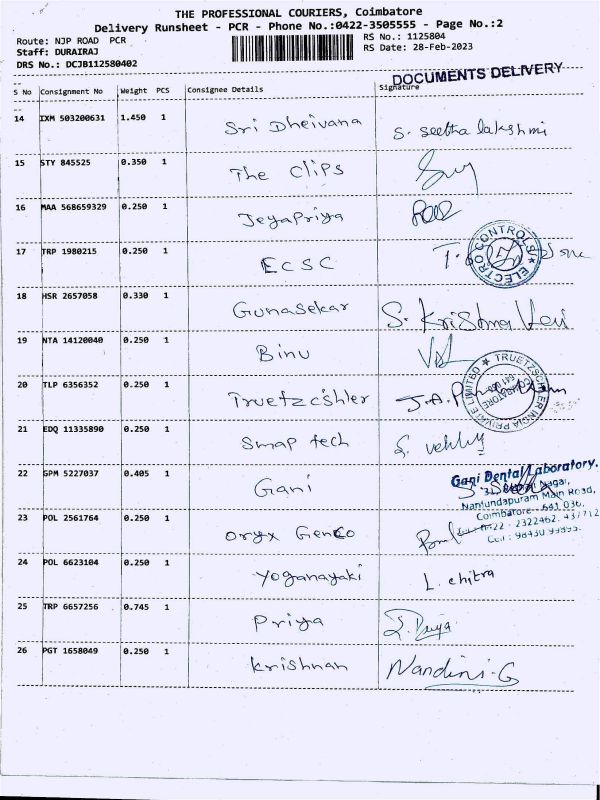 THE PROFESSIONAL COURIERS, Coimbatore
Delivery Runsheet - PCR - Phone No.:0422-3505555 - Page No.:2
Route: NJP ROAD PCR
RS No.: 1125804
Staff: DURAIRAJ
RS Date: 28-Feb-2023
DRS No.: DCJB112580402
DOCUMENTS DELIVERY
S No Consignment No Weight PCS Consignee Details Signature
14 IXM 503200631 1.450 1 Sri Dheivana S. Seetha lakshmi
15 STY 845525 0.350 1 The Clips
16 MAA 568659329 0.250 1 JeyaPriya
17 TRP 1980215 0.250 1 ECSC
ELECTRO CONTROLS
18 HSR 2657058 0.330 1 Gunasekar S. Krishna Veni
19 NTA 14120040 0.250 1 Binu
20 TLP 6356352 0.250 1 Truetzcshler J.A.
TRUETZSCHLER INDIA PRIVATE LIMITED
COIMBATORE
21 EDQ 11335890 0.250 1 Smap tech
22 GPM 5227037 0.405 1 Gani
Gani Dental Laboratory.
Nagar,
Nanjundapuram Main Road,
Coimbatore - 641 036.
23 POL 2561764 0.250 1 Oryx Genco
24 POL 6623104 0.250 1 Yoganayaki L. chitra
25 TRP 6657256 0.745 1 Priya S. Priya
26 PGT 1658049 0.250 1 Krishnan Nandini-G